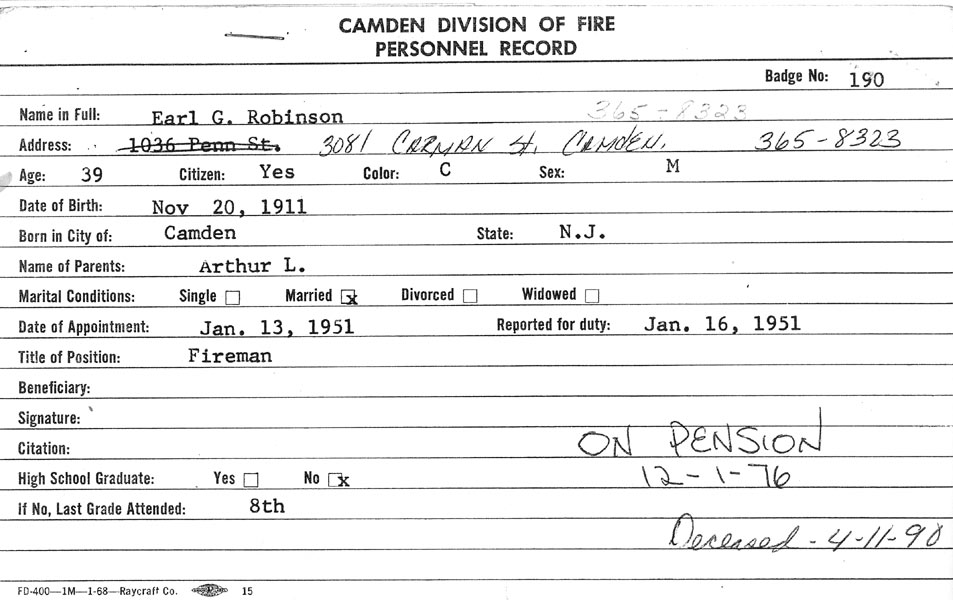 CAMDEN DIVISION OF FIRE
PERSONNEL RECORD
Badge No: 190
Name in Full: Earl G. Robinson 365-8323
Address: 1036 Penn St. 3081 CARMAN St. CAMDEN. 365-8323
Age: 39 Citizen: Yes Color: C Sex: M
Date of Birth: Nov 20, 1911
Born in City of: Camden State: N.J.
Name of Parents: Arthur L.
Marital Conditions: Single ☐ Married ☒ Divorced ☐ Widowed ☐
Date of Appointment: Jan. 13, 1951 Reported for duty: Jan. 16, 1951
Title of Position: Fireman
Beneficiary:
Signature:
Citation: ON PENSION
High School Graduate: Yes ☐ No ☒ 12-1-76
If No, Last Grade Attended: 8th
Deceased - 4-11-90
FD-400—1M—1-68—Raycraft Co. 15